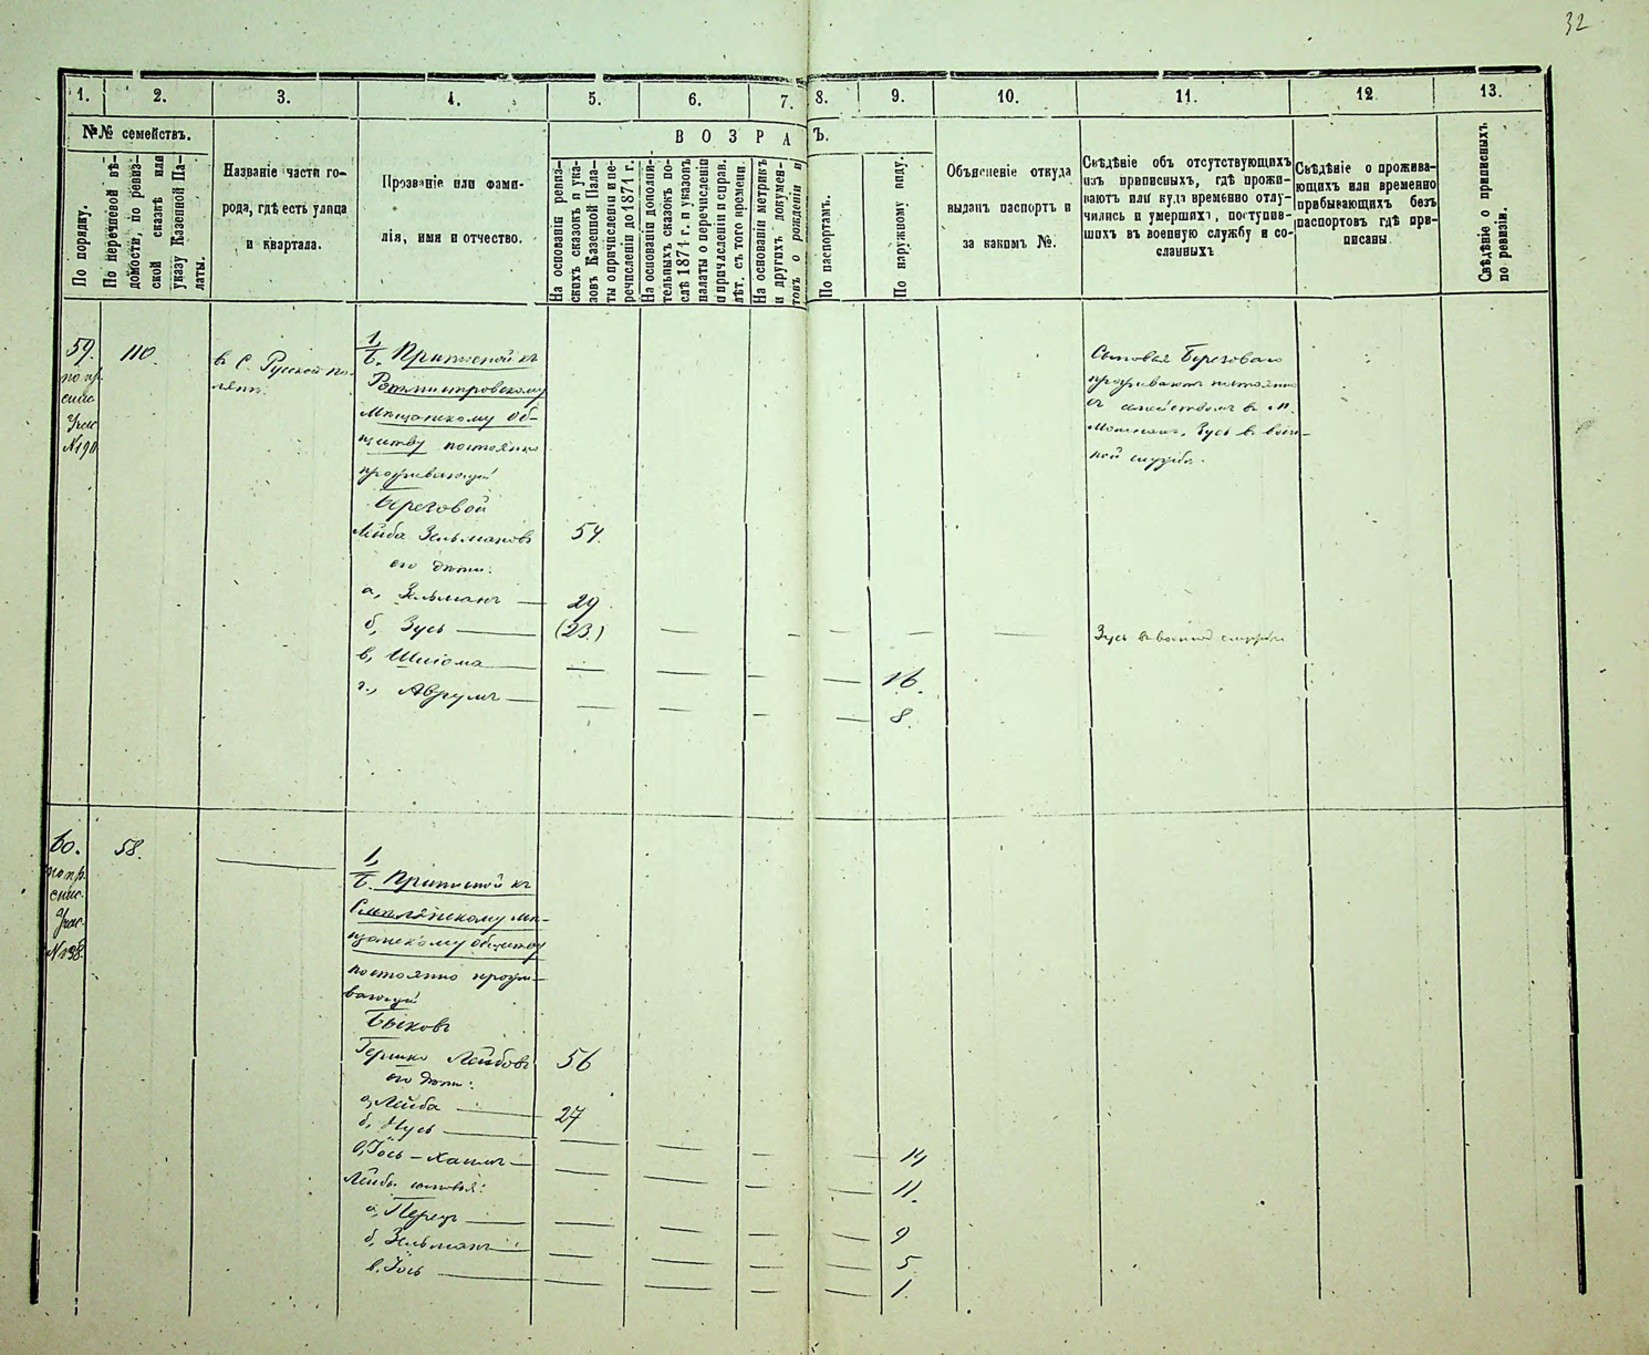 32
1. 2. 3. 4. 5. 6. 7. 8. 9. 10. 11. 12. 13.
№№ семействъ.
По порядку.
По перечневой вѣ-
домости, по ревиз-
ской сказкѣ или
указу Казенной Па-
латы.
Названіе части го-
рода, гдѣ есть улица
и квартала.
Прозваніе или фами-
лія, имя и отчество.
ВОЗРА
Ъ.
На основаніи ревиз-
скихъ сказокъ и ука-
зовъ Казенной Пала-
ты о причисленіи и пе-
речисленіи до 1874 г.
На основаніи дополни-
тельныхъ сказокъ по-
слѣ 1874 г. и указовъ
палаты о перечисленіи
и причисленіи и справ.
лѣт. съ того времени.
На основаніи метрикъ
и другихъ докумен-
товъ о рожденіи и
По паспортамъ.
По наружному виду.
Объясненіе откуда
выданъ паспортъ и
за какимъ №.
Свѣдѣніе объ отсутствующихъ
изъ приписныхъ, гдѣ прожи-
ваютъ или куда временно отлу-
чились и умершихъ, поступив-
шихъ въ военную службу и со-
сланныхъ
Свѣдѣніе о прожива-
ющихъ или временно
прибывающихъ безъ
паспортовъ гдѣ при-
писаны.
Свѣдѣніе о приписныхъ
по ревизіи.
59.
по пр.
спис.
№190
110.
въ С. Русской По-
лянѣ.
1,
Б. Приписной къ
Ротмистровскому
Мѣщанскому об-
ществу постоянно
проживающій
Береговой
Лейба Зельмановъ 54.
его дѣти:
а, Зельманъ — 29.
б, Зусь — (23) — — — — — Зусь въ военной службѣ
в, Шліома — — — — — 16.
г, Аврумъ — — — — — 8.
Сыновья Береговаго
проживаютъ постоянно
съ семействомъ въ м.
Зусь въ воен-
ной службѣ.
60.
по пр.
спис.
№138.
58.
1,
Б. Приписной къ
Смѣлянскому мѣ-
щанскому обществу
постоянно прожи-
вающій
Быковъ
Гершко Лейбовъ 56
его дѣти:
а, Лейба — 27
б, Нусь — — — — — 14
в, Іось-Хаимъ — — — — — 11.
Лейбы сыновья:
а, Перецъ — — — — — 9
б, Зельманъ — — — — — 5
в, Іось — — — — — 1.